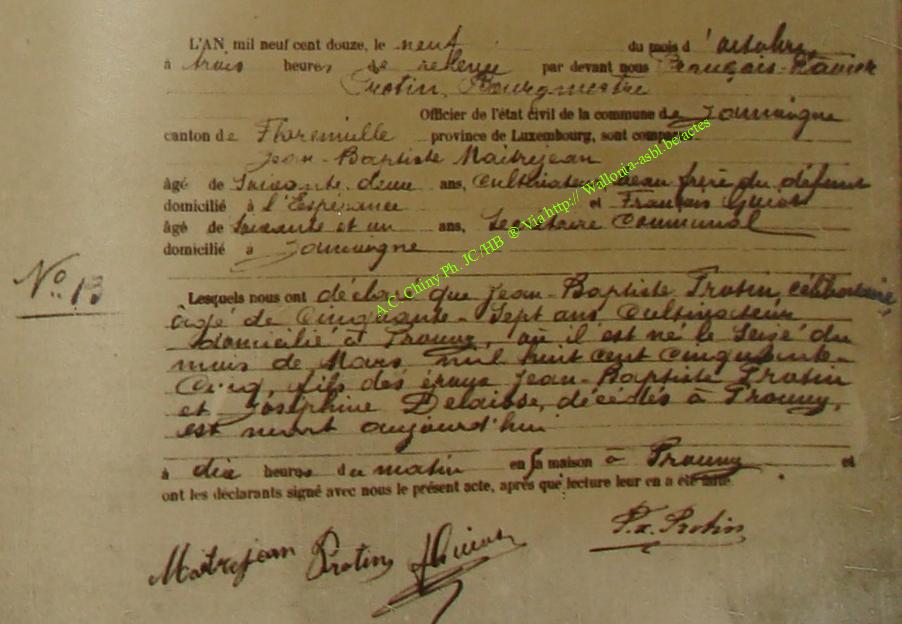 L'AN mil neuf cent douze, le neuf du mois d'octobre
à trois heures de relevée par devant nous François-Xavier
Protin, Bourgmestre
Officier de l'état civil de la commune de Jamoigne
canton de Florenville province de Luxembourg, sont comparus
Jean-Baptiste Maitrejean
âgé de Soixante-deux ans, Cultivateur, beau frère du défunt
domicilié à l'Espérance et François
âgé de Soixante et un ans, Secrétaire Communal
domicilié à Jamoigne
N° 13
Lesquels nous ont déclaré que Jean-Baptiste Protin, célibataire,
âgé de Cinquante-Sept ans Cultivateur
domicilié à Prouvy, où il est né le Seize du
mois de Mars mil huit cent cinquante-
Cinq, fils des époux Jean-Baptiste Protin
et Joséphine Delaisse, décédés à Prouvy,
est mort aujourd'hui
à dix heures du matin en sa maison à Prouvy et
ont les déclarants signé avec nous le présent acte, après que lecture leur en a été faite.
Maitrejean Protin
F.x. Protin
A.C. Chiny Ph. JC/HB ® Via http:// Wallonia-asbl.be/actes